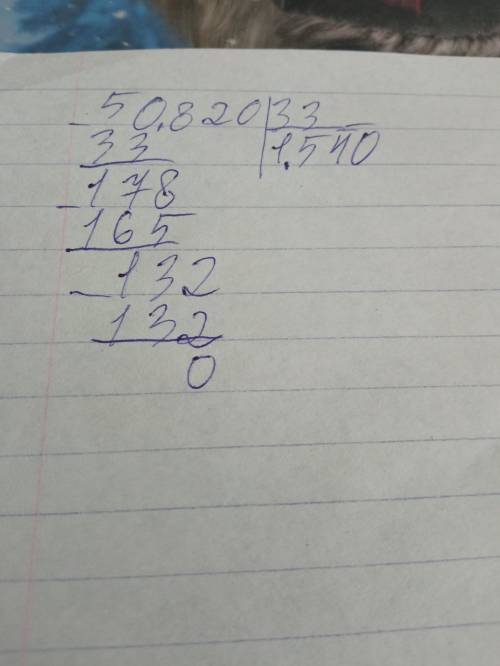 - 50.820 | 33
33 | 1.540
- 178
165
- 132
132
0